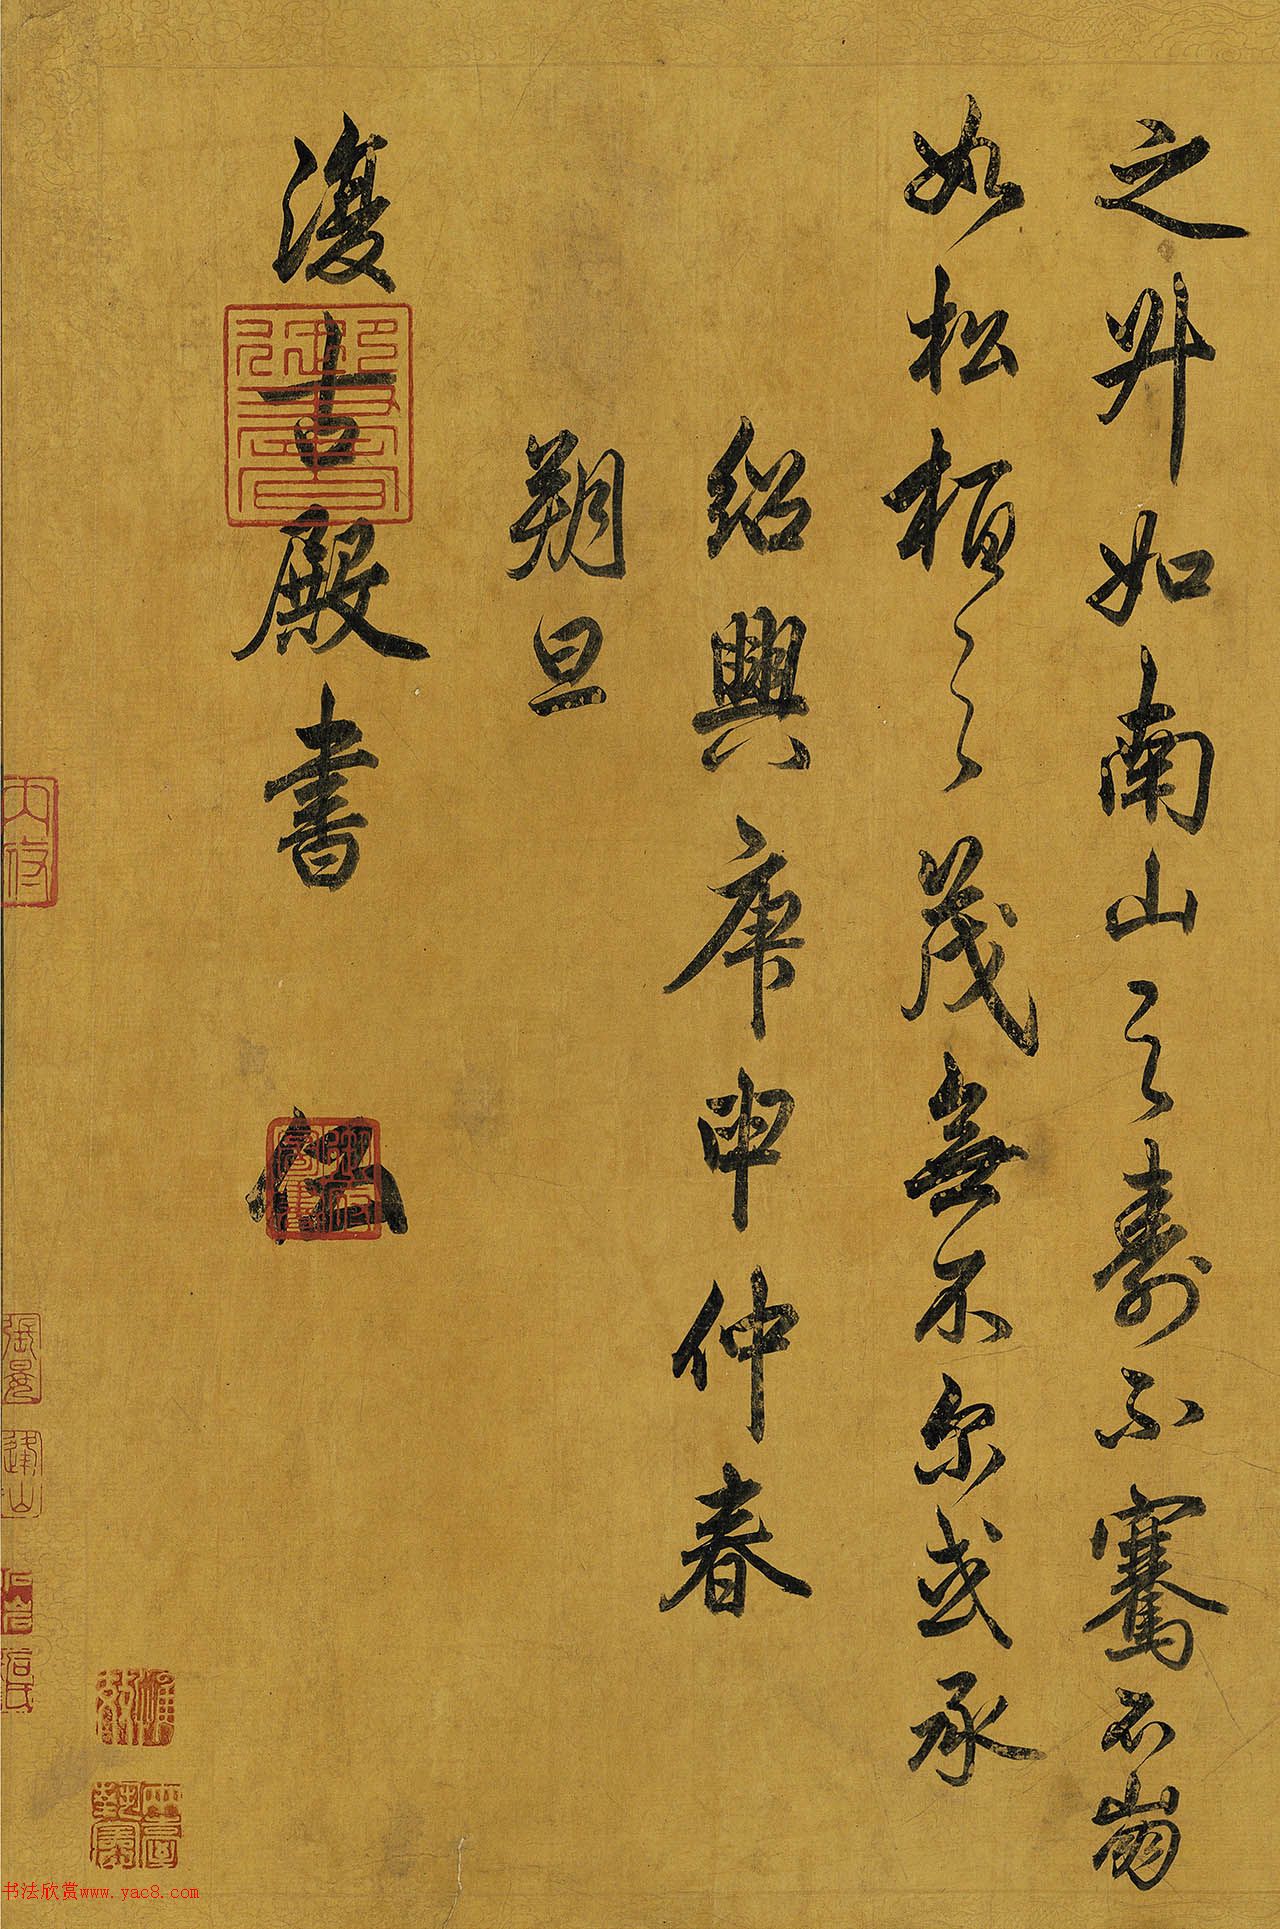 之升如南山之壽不騫不崩
如松柏之茂無不尔或承
紹興庚申仲春
朔旦
復古殿書
御書
内府
書法欣赏www.yac8.com